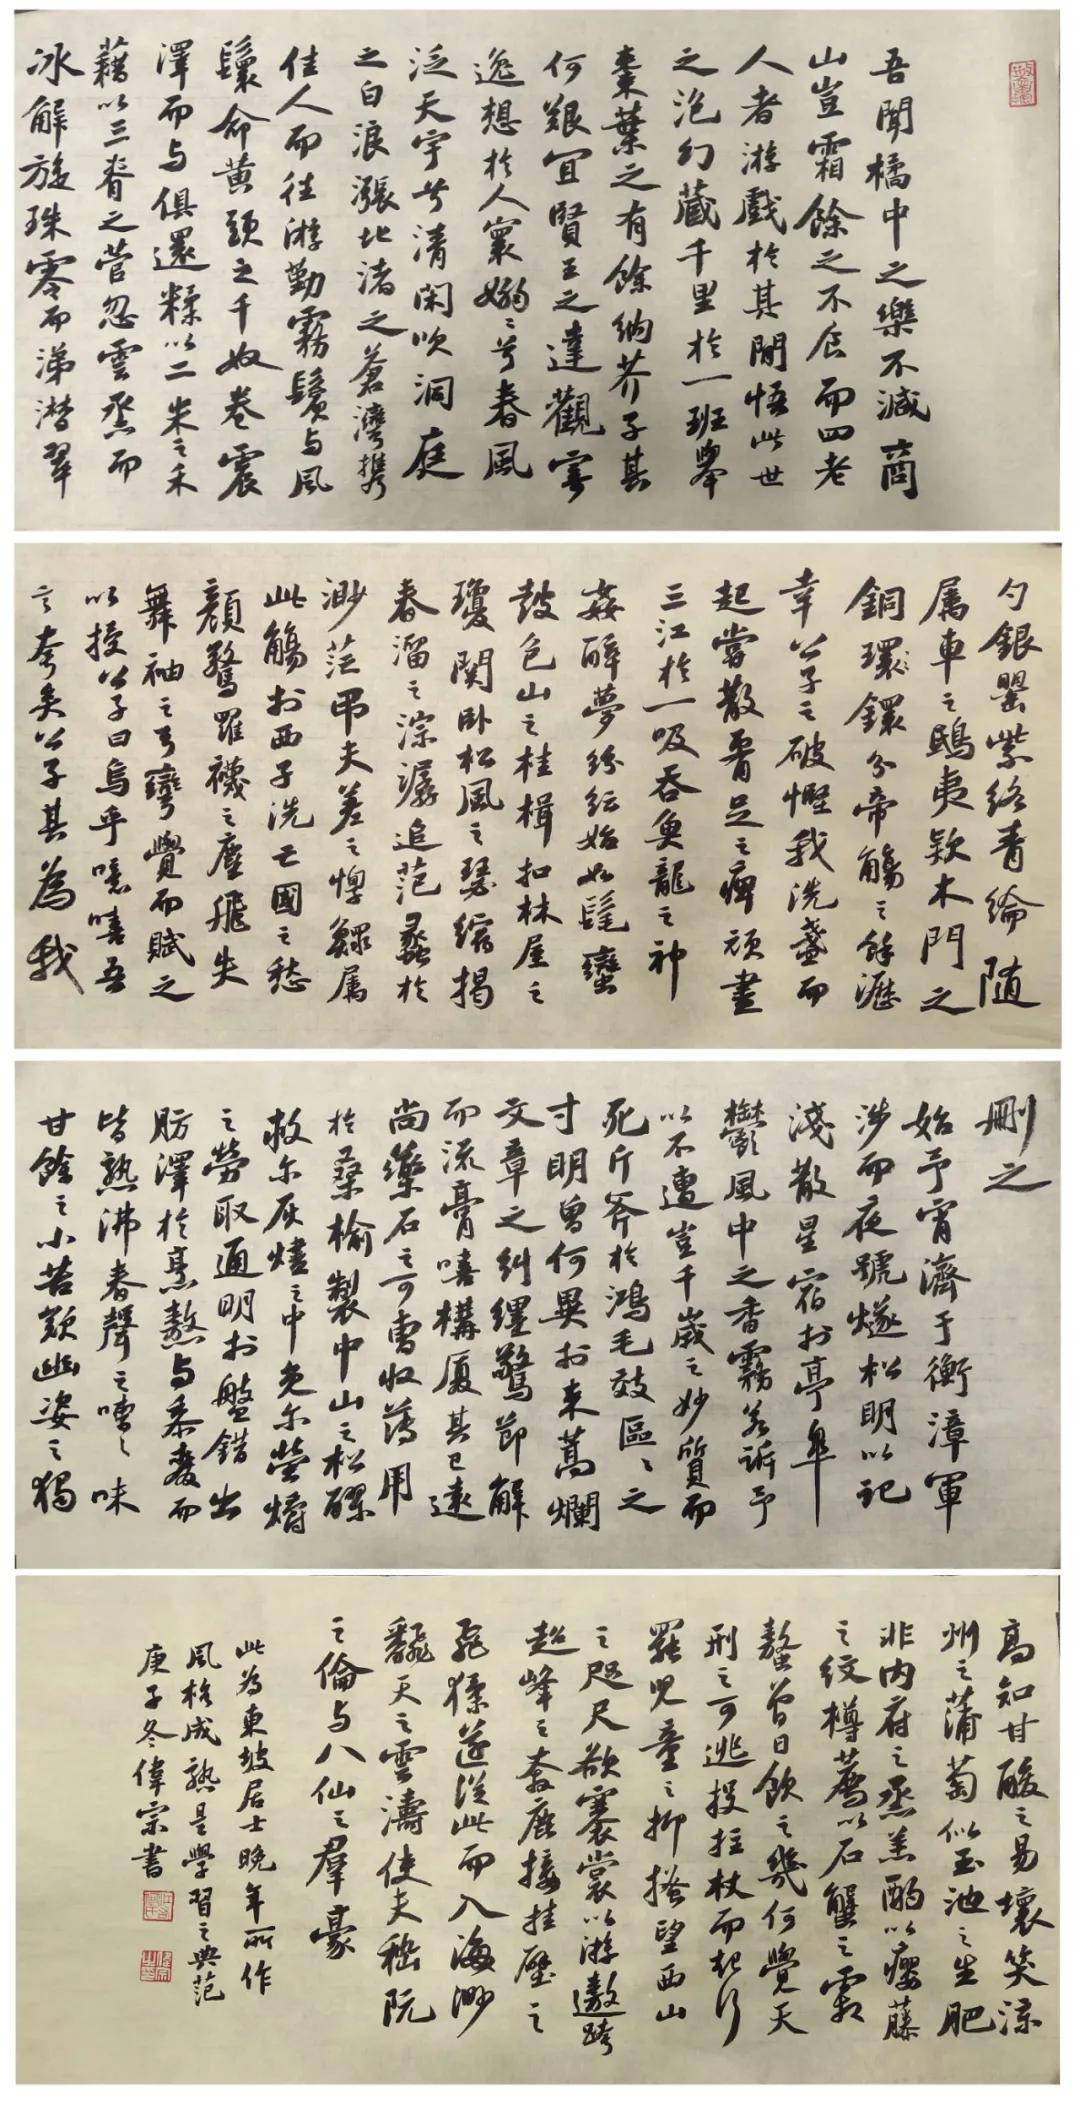 吾聞橘中之樂不減商
山豈霜餘之不食而四老
人者游戲於其間悟此世
之泡幻藏千里於一班舉
棗葉之有餘納芥子其
何艱宜賢王之達觀寄
逸想於人寰嫋〻兮春風
泛天宇兮清閑吹洞庭
之白浪漲北渚之蒼灣携
佳人而往游勤霧鬢与風
鬟命黄頭之千奴卷震
澤而与俱還糅以二米之禾
藉以三脊之菅忽雲烝而
冰解旋珠零而涕潸翠
勺銀罌紫絡青綸随
属車之鴟夷欵木門之
銅環鐶分帝觴之餘瀝
幸公子之破慳我洗盞而
起嘗散腰足之痺頑盡
三江於一吸吞魚龍之神
姦醉夢紛紜始如髦蠻
鼓包山之桂楫扣林屋之
瓊関卧松風之瑟縮揭
春溜之淙潺追范蠡於
渺茫弔夫差之惸鰥属
此觴於西子洗亡國之愁
顔驚羅襪之塵飛失
舞袖之弓彎覺而賦之
以授公子曰烏乎噫嘻吾
言夸矣公子其為我
刪之
始予宵濟于衡漳軍
涉而夜號燧松明以記
淺散星宿於亭皐
鬱風中之香霧若訴予
以不遭豈千歲之妙質而
死斤斧於鴻毛效區〻之
寸明曾何異於束蒿爛
文章之糾纆驚節解
而流膏嘻構厦其已遠
尚藥石之可曹收薄用
於桑榆製中山之松醪
救尔灰燼之中免尔螢爝
之勞取通明於盤錯出
肪澤於烹熬与黍麥而
皆熟沸舂聲之嘈〻味
甘餘之小苦歎幽姿之獨
高知甘酸之易壞笑涼
州之蒲萄似玉池之生肥
非内府之烝羔酌以癭藤
之紋樽薦以石蟹之霜
螯曾日飲之幾何覺天
刑之可逃投拄杖而起行
罷兒童之抑搔望西山
之咫尺欲褰裳以游遨跨
超峰之奔鹿接挂壁之
飛猱遂從此而入海渺
翻天之雲濤使夫嵇阮
之倫与八仙之羣豪
此為東坡居士晚年所作
風格成熟是學習之典范
庚子冬偉宗書